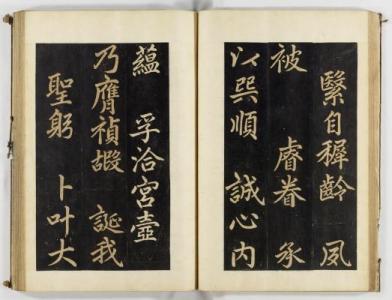 緊自穉齡 夙
被 睿眷承
以巽順 誠心内
蘊 孚洽宮壼
乃膺禎嘏 誕我
聖躬 卜叶大